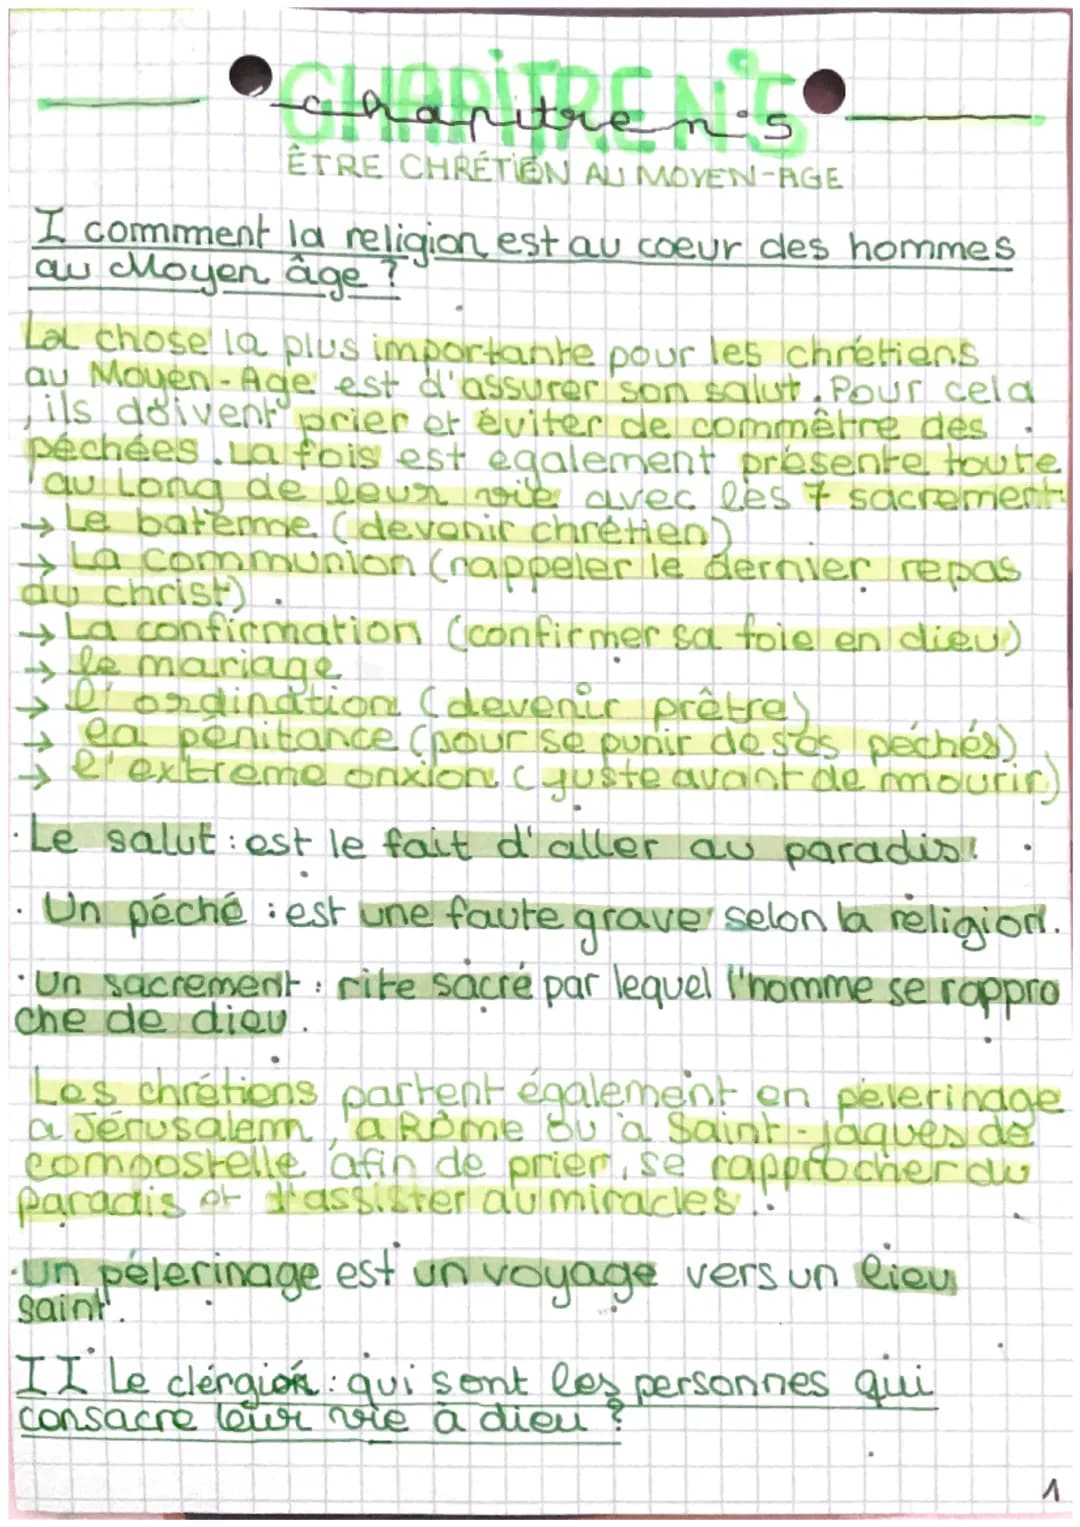 CHAPITRE N°5
chapitre n°5
ÊTRE CHRÉTIEN AU MOYEN-AGE
I comment la religion est au coeur des hommes
au Moyen âge ?
La chose la plus importante pour les chrétiens
au Moyen-Age est d'assurer son salut. Pour cela
, ils doivent prier et éviter de commêtre des
péchées. La fois est également présente toute
au long de leur vie avec les 7 sacrement
→ Le batême (devenir chrétien)
→ La communion (rappeler le dernier repas
du christ).
→ La confirmation (confirmer sa foie en dieu)
→ le mariage
→ l'ordination (devenir prêtre)
→ la pénitance (pour se punir de ses péchés)
→ l'extreme onxion (juste avant de mourir)
· Le salut : est le fait d'aller au paradis.
· Un péché : est une faute grave selon la religion.
· Un sacrement : rite sacré par lequel l'homme se rappro
che de dieu.
Les chrétiens partent également en pélerinage
a Jérusalem, a Rome ou à Saint-jaques de
compostelle afin de prier, se rapprocher du
paradis et d'assister au miracles.
· Un pélerinage est un voyage vers un lieu
saint.
II Le clérgion : qui sont les personnes qui
consacre leur vie à dieu ?
1